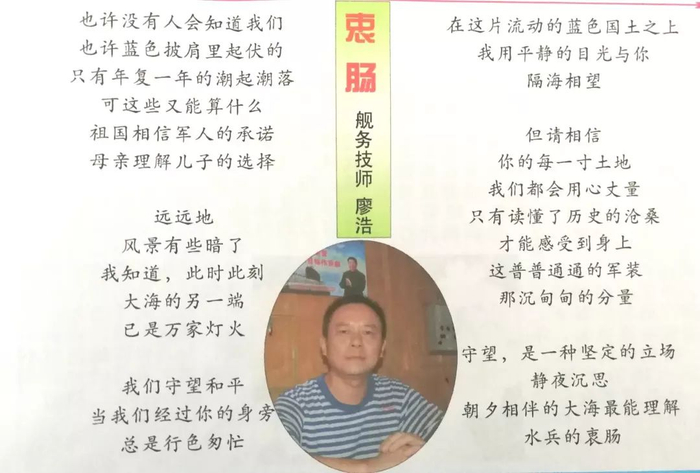 衷肠
舰务技师 廖浩
也许没有人会知道我们
也许蓝色披肩里起伏的
只有年复一年的潮起潮落
可这些又能算什么
祖国相信军人的承诺
母亲理解儿子的选择
远远地
风景有些暗了
我知道，此时此刻
大海的另一端
已是万家灯火
我们守望和平
当我们经过你的身旁
总是行色匆忙
在这片流动的蓝色国土之上
我用平静的目光与你
隔海相望
但请相信
你的每一寸土地
我们都会用心丈量
只有读懂了历史的沧桑
才能感受到身上
这普普通通的军装
那沉甸甸的分量
守望，是一种坚定的立场
静夜沉思
朝夕相伴的大海最能理解
水兵的衷肠